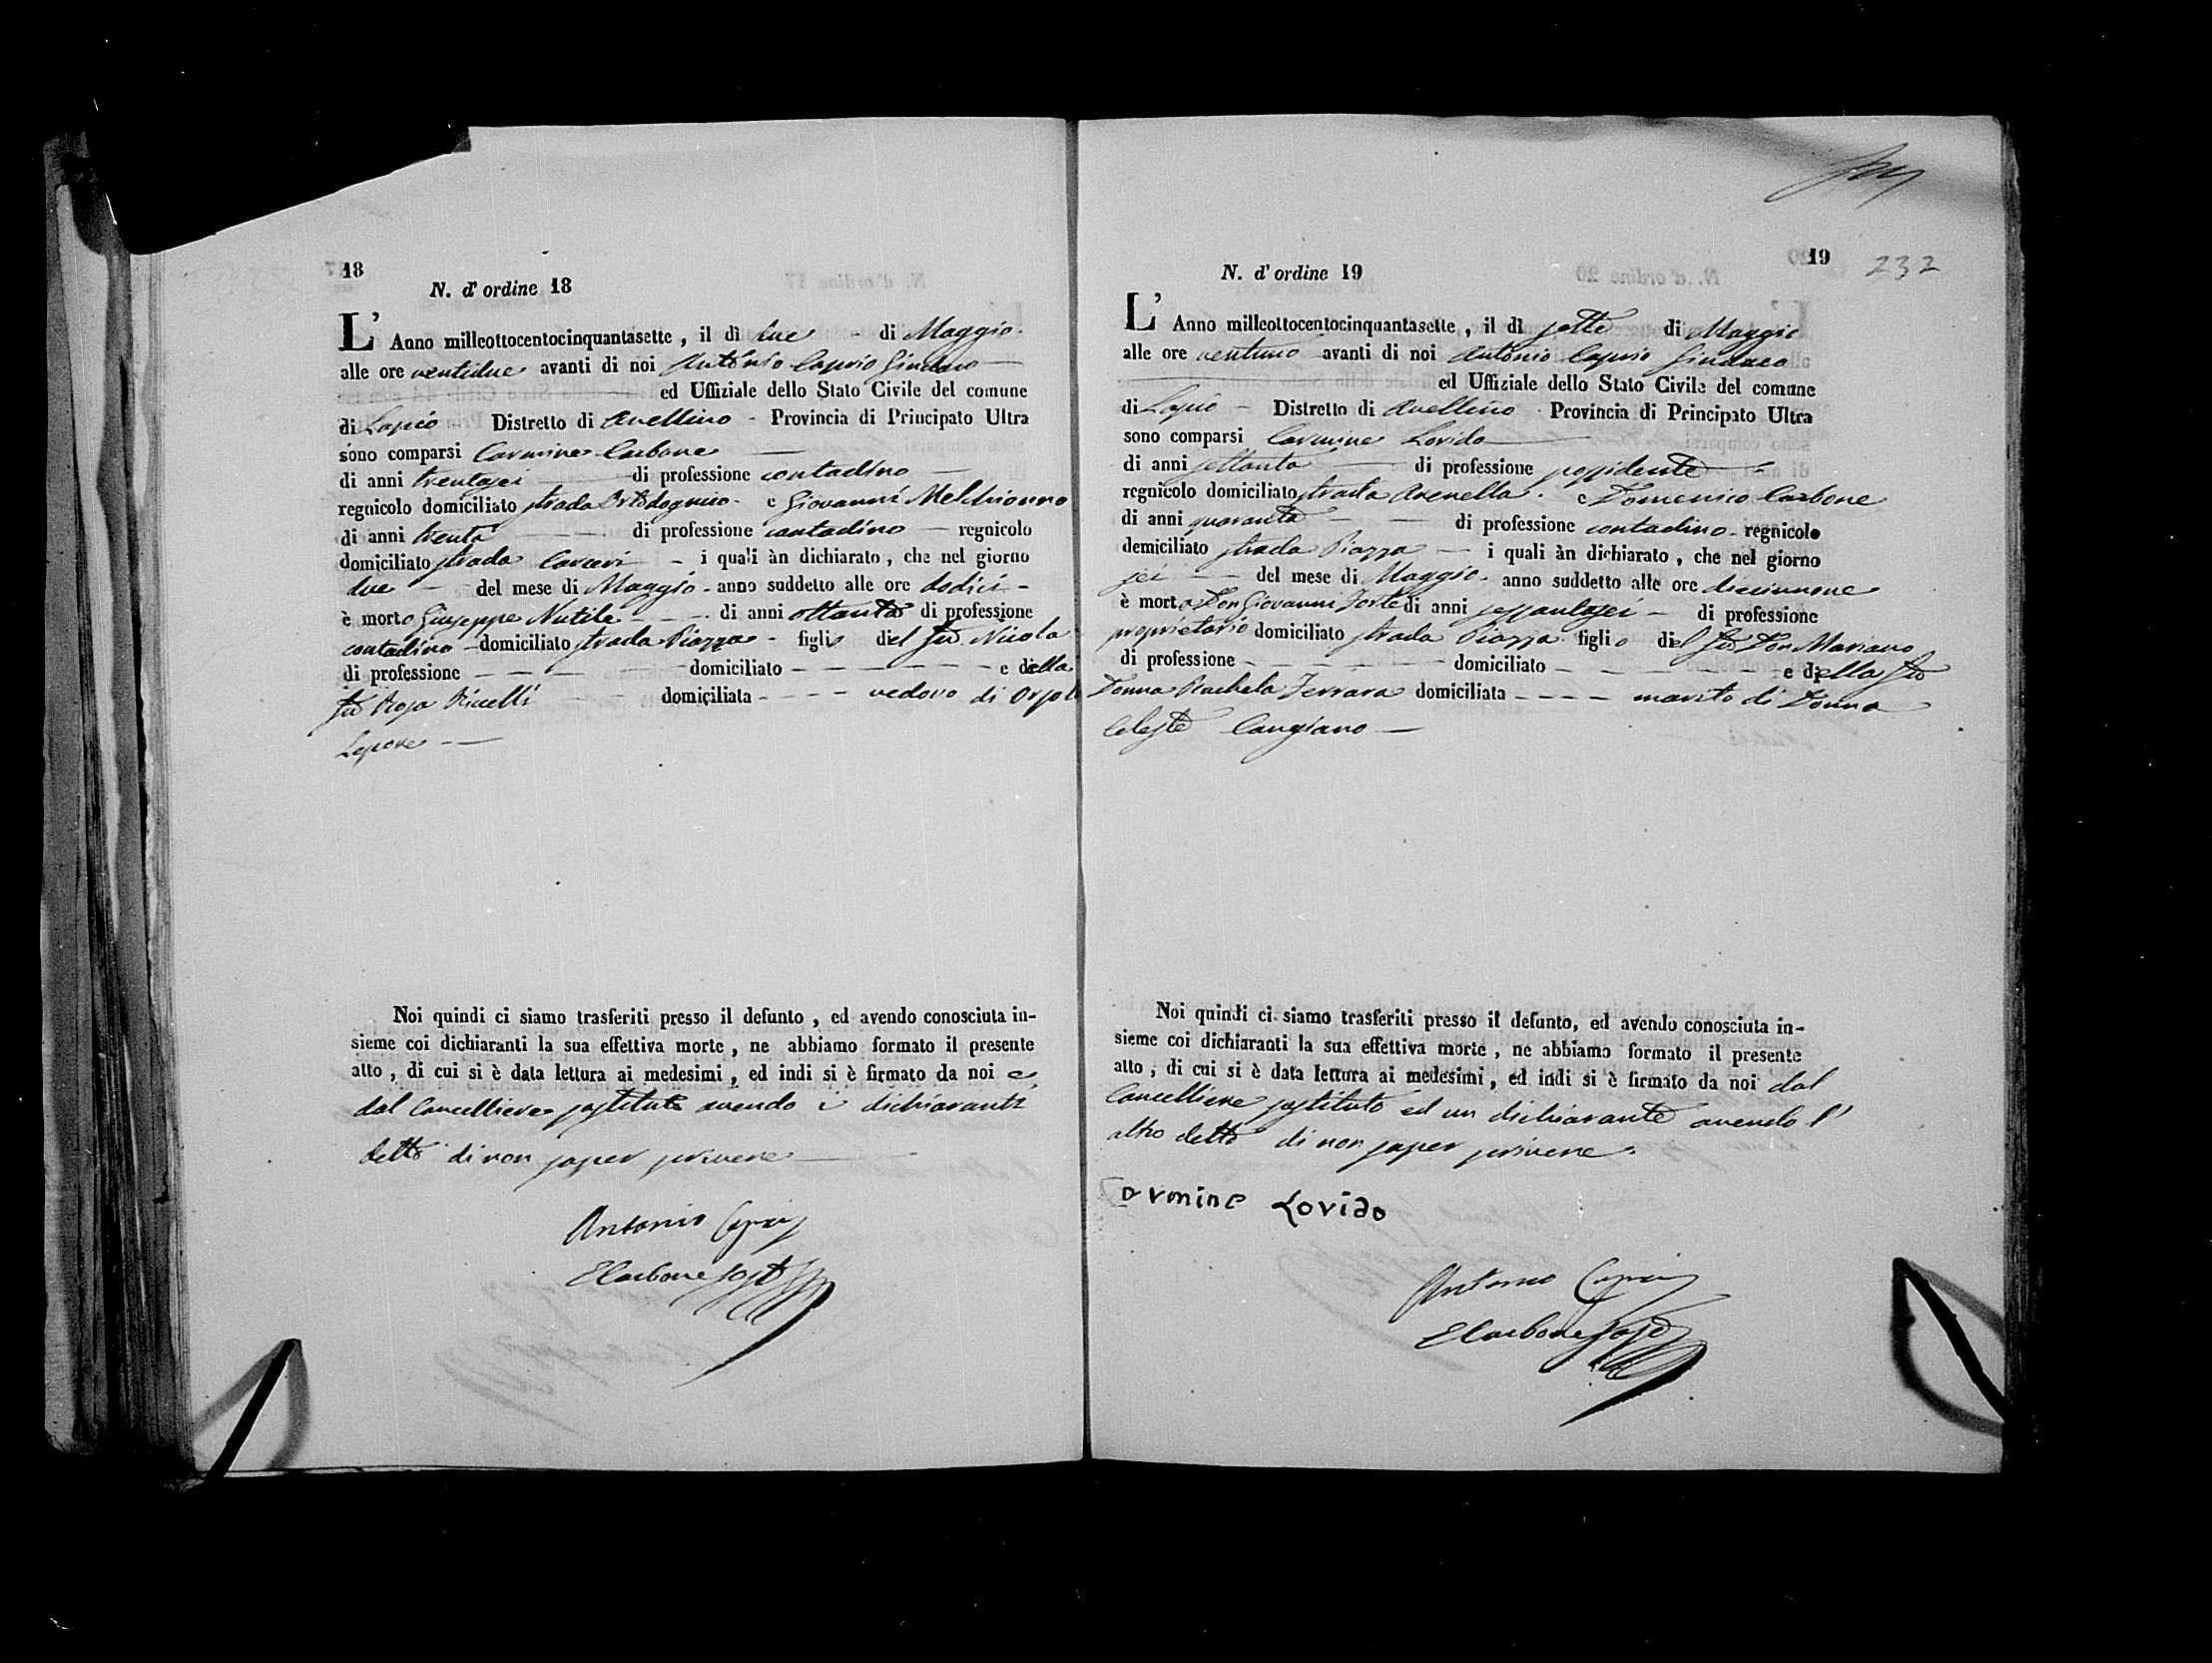 18
N. d' ordine 18
L' Anno milleottocentocinquantasette, il dì due - di Maggio
alle ore ventidue avanti di noi Antonio Caprio Sindaco
ed Uffiziale dello Stato Civile del comune
di Lapio Distretto di Avellino - Provincia di Principato Ultra
sono comparsi Carmine Carbone
di anni trentasei di professione contadino
regnicolo domiciliato strada e Giovanni Melchionno
di anni trenta di professione contadino - regnicolo
domiciliato strada Carceri - i quali àn dichiarato, che nel giorno
due - del mese di Maggio - anno suddetto alle ore dodici -
è morto Giuseppe Nutile - di anni ottanta di professione
contadino - domiciliato strada Piazza - figlio del fu Nicola
di professione - domiciliato - e della
fu Rosa domiciliata - vedovo di Orsola
Lepore
Noi quindi ci siamo trasferiti presso il defunto, ed avendo conosciuta in-
sieme coi dichiaranti la sua effettiva morte, ne abbiamo formato il presente
atto, di cui si è data lettura ai medesimi, ed indi si è firmato da noi e
dal Cancelliere sostituto avendo i dichiaranti
detto di non saper scrivere
Antonio Caprio
E Carbone Sost
19
232
N. d' ordine 19
L' Anno milleottocentocinquantasette, il dì sette di Maggio
alle ore ventuno avanti di noi Antonio Caprio Sindaco
ed Uffiziale dello Stato Civile del comune
di Lapio - Distretto di Avellino Provincia di Principato Ultra
sono comparsi Carmine Lorido
di anni settanta di professione possidente
regnicolo domiciliato strada Arenella. e Domenico Carbone
di anni quaranta di professione contadino - regnicolo
domiciliato strada Piazza - i quali àn dichiarato, che nel giorno
sei - del mese di Maggio - anno suddetto alle ore diciannove
è morto Don Giovanni Forte di anni sessantasei - di professione
proprietario domiciliato strada Piazza figlio del fu Don Mariano
di professione - domiciliato - e della fu
Donna Rachela Ferrara domiciliata - marito di Donna
Celeste Cangiano
Noi quindi ci siamo trasferiti presso il defunto, ed avendo conosciuta in-
sieme coi dichiaranti la sua effettiva morte, ne abbiamo formato il presente
atto, di cui si è data lettura ai medesimi, ed indi si è firmato da noi dal
Cancelliere sostituto ed un dichiarante avendo l'
altro detto di non saper scrivere.
Carmine Lorido
Antonio Caprio
E Carbone Sost